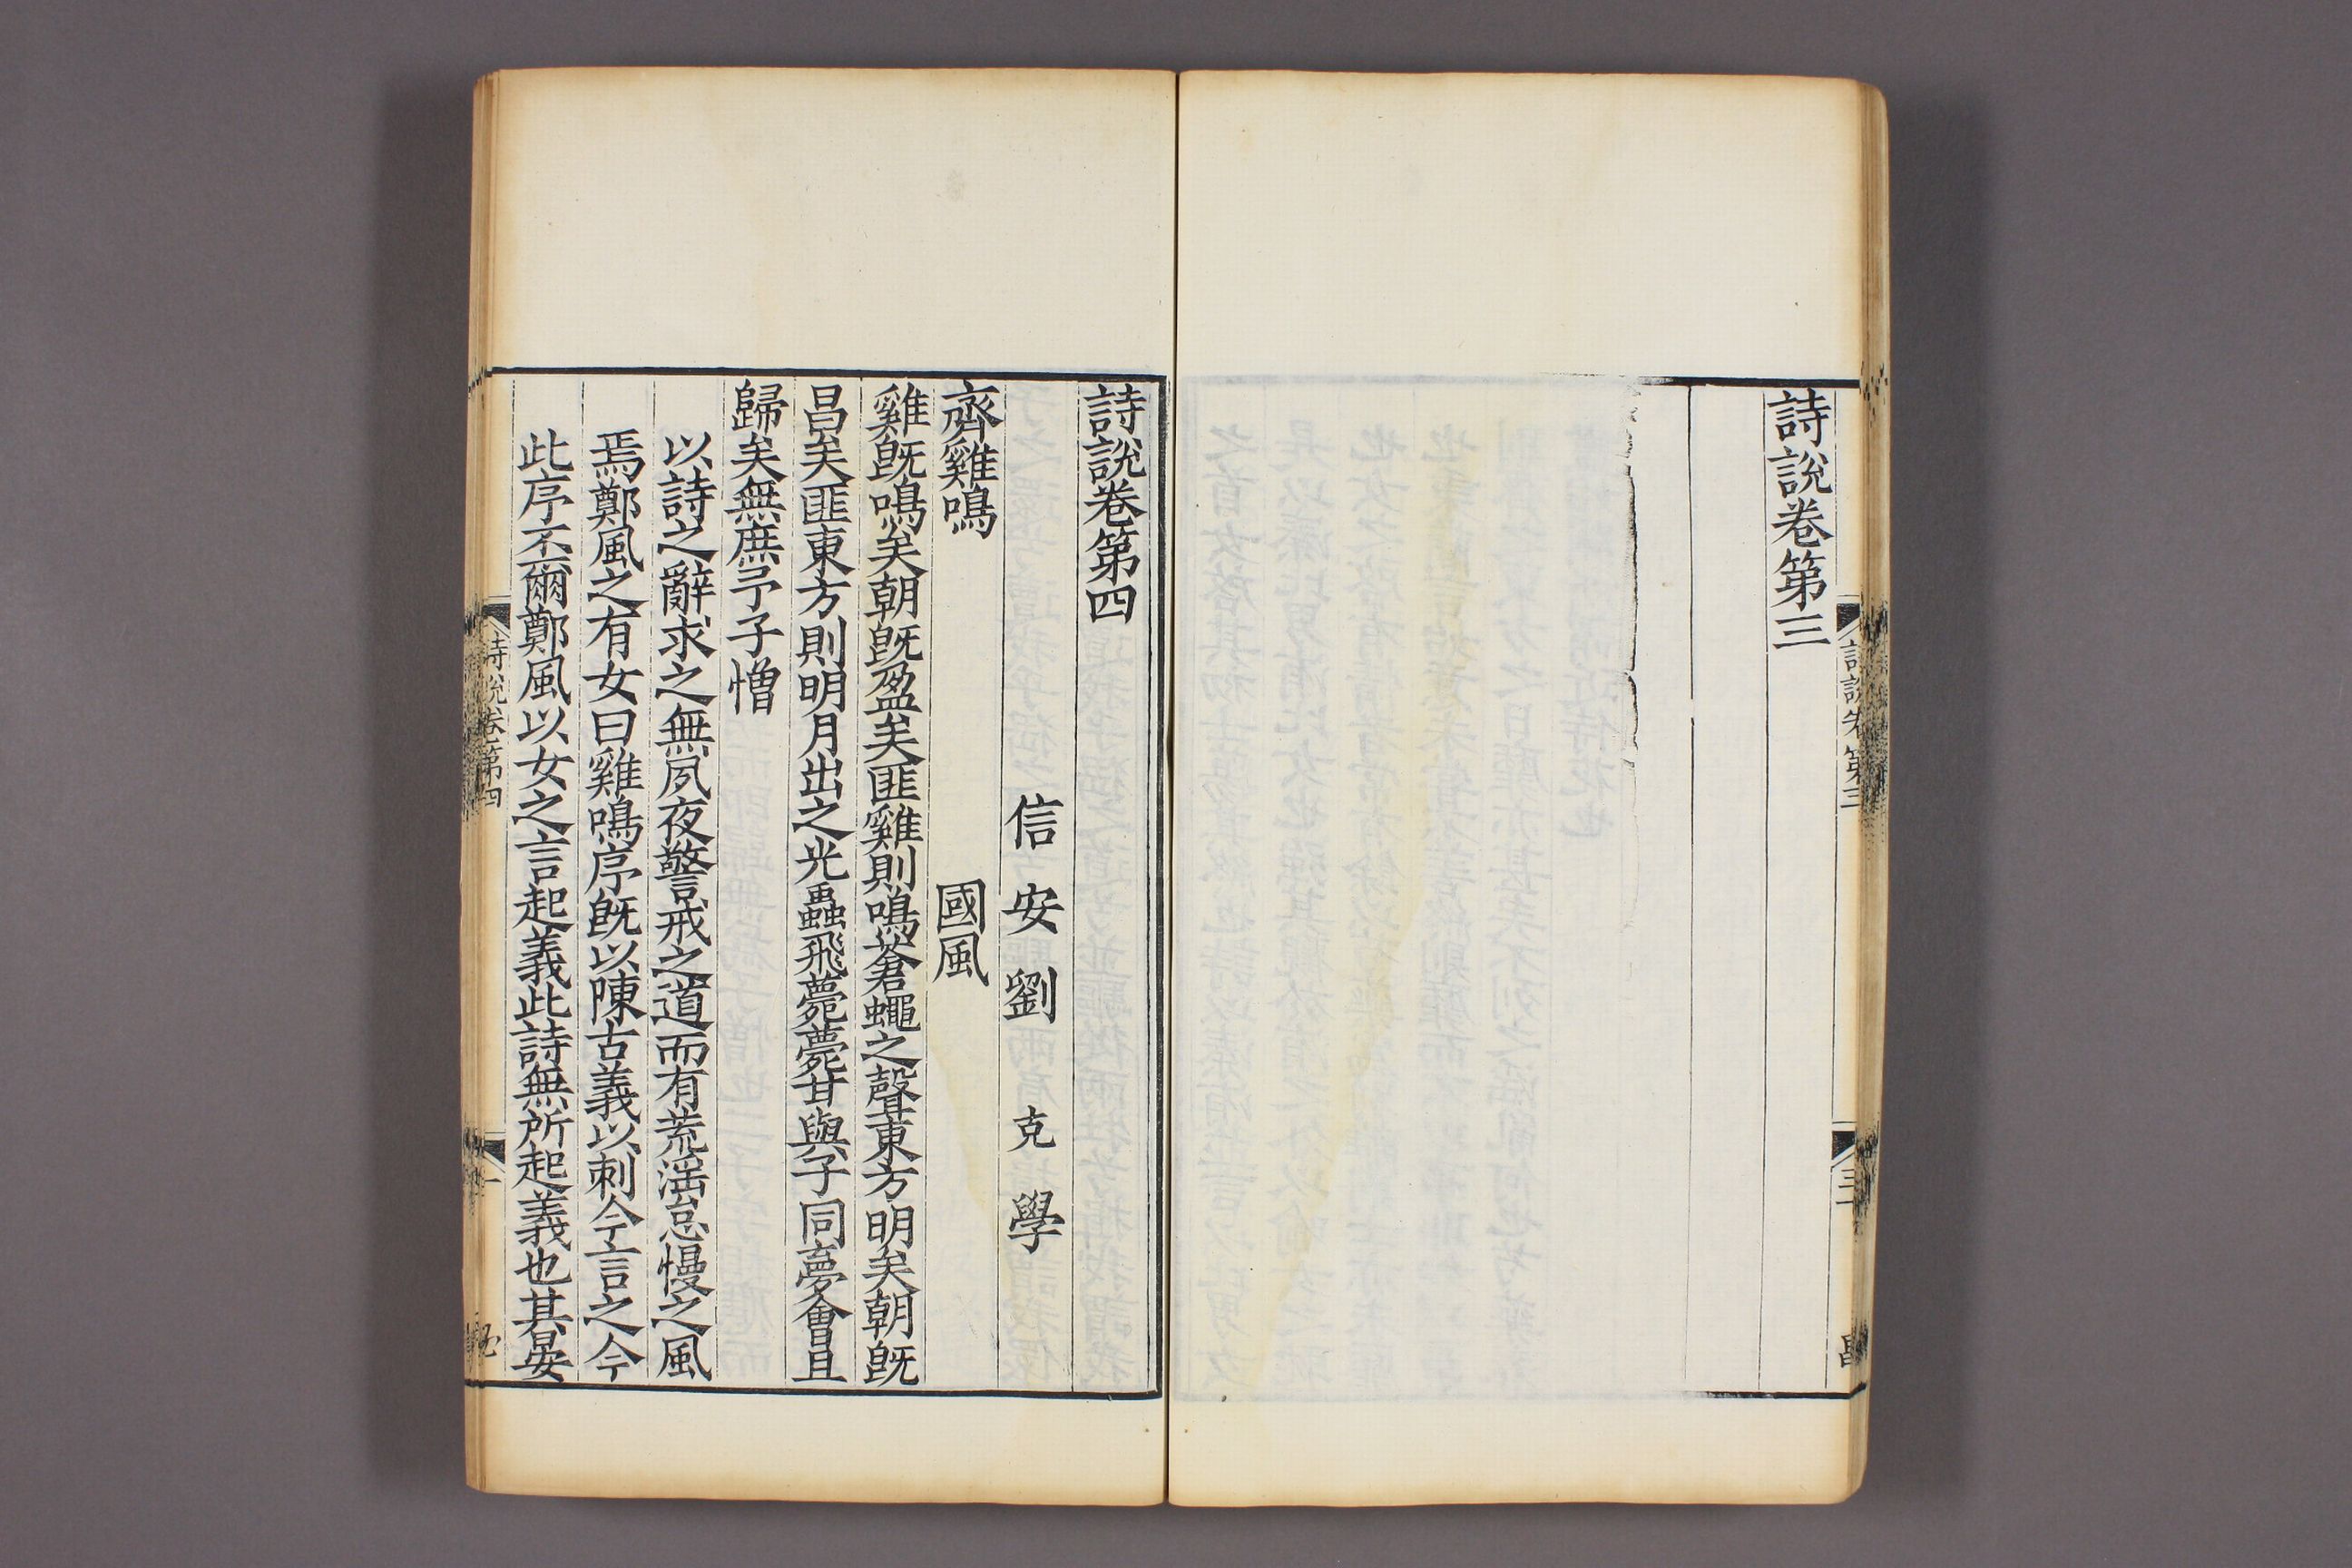 詩說卷第三
詩說卷第三
詩說卷第四
信安劉克學
齊雞鳴
國風
雞旣鳴矣朝旣盈矣匪雞則鳴蒼蠅之聲東方明矣朝旣
昌矣匪東方則明月出之光蟲飛薨薨甘與子同夢會且
歸矣無庶予子憎
以詩之辭求之無夙夜警戒之道而有荒滛怠慢之風
焉鄭風之有女曰雞鳴序旣以陳古義以刺今言之今
此序不爾鄭風以女之言起義此詩無所起義也其晏
詩說卷第四
一